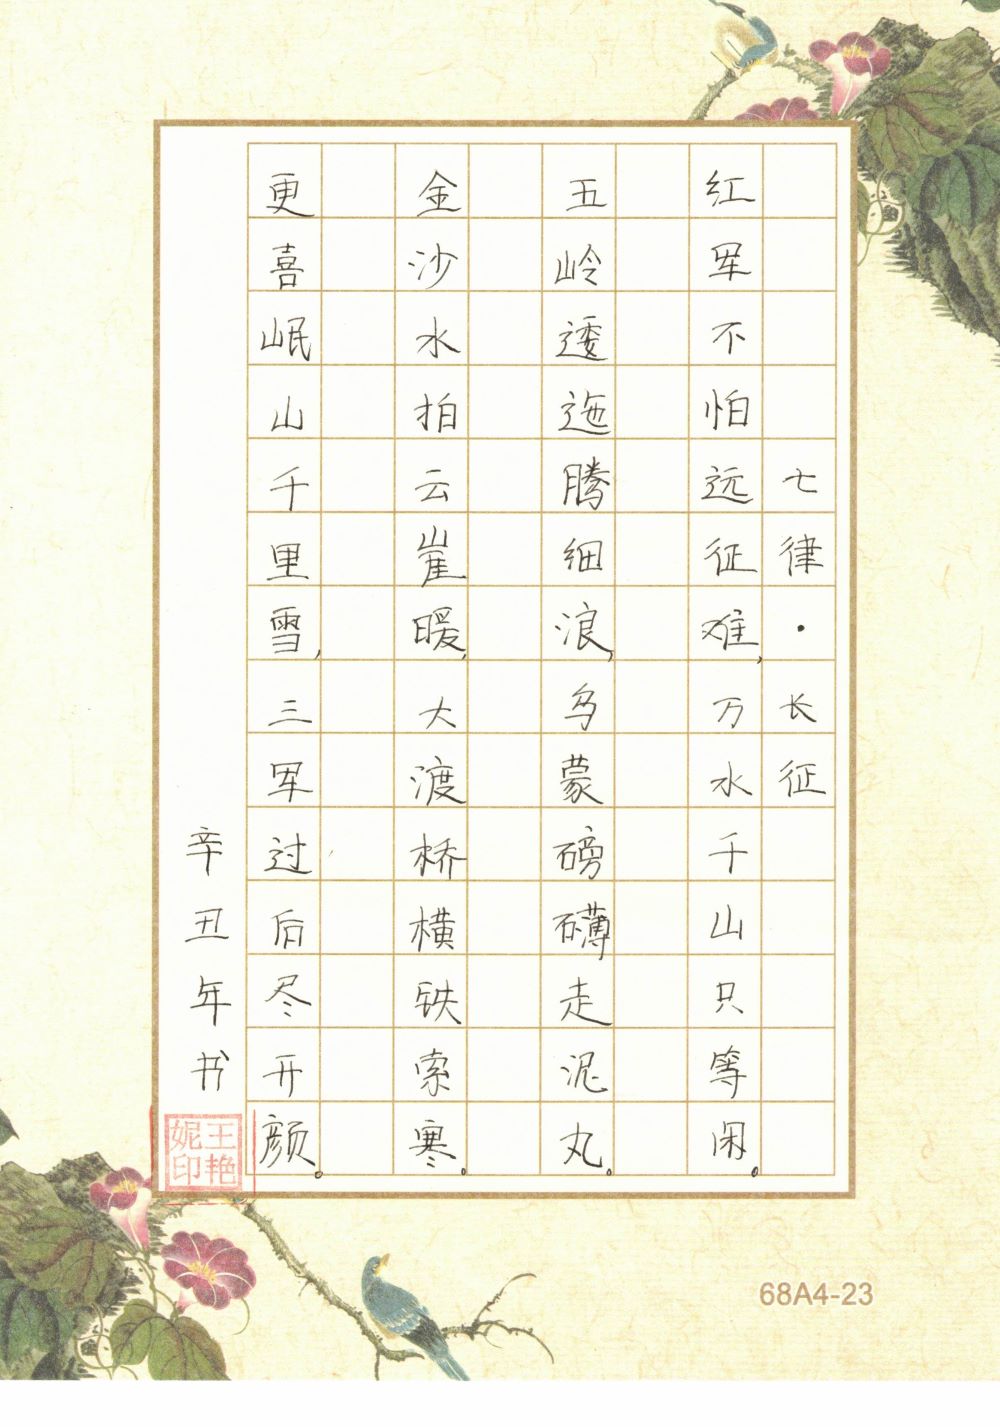 七律·长征
红军不怕远征难，万水千山只等闲。
五岭逶迤腾细浪，乌蒙磅礴走泥丸。
金沙水拍云崖暖，大渡桥横铁索寒。
更喜岷山千里雪，三军过后尽开颜。
辛丑年书
王艳妮印
68A4-23